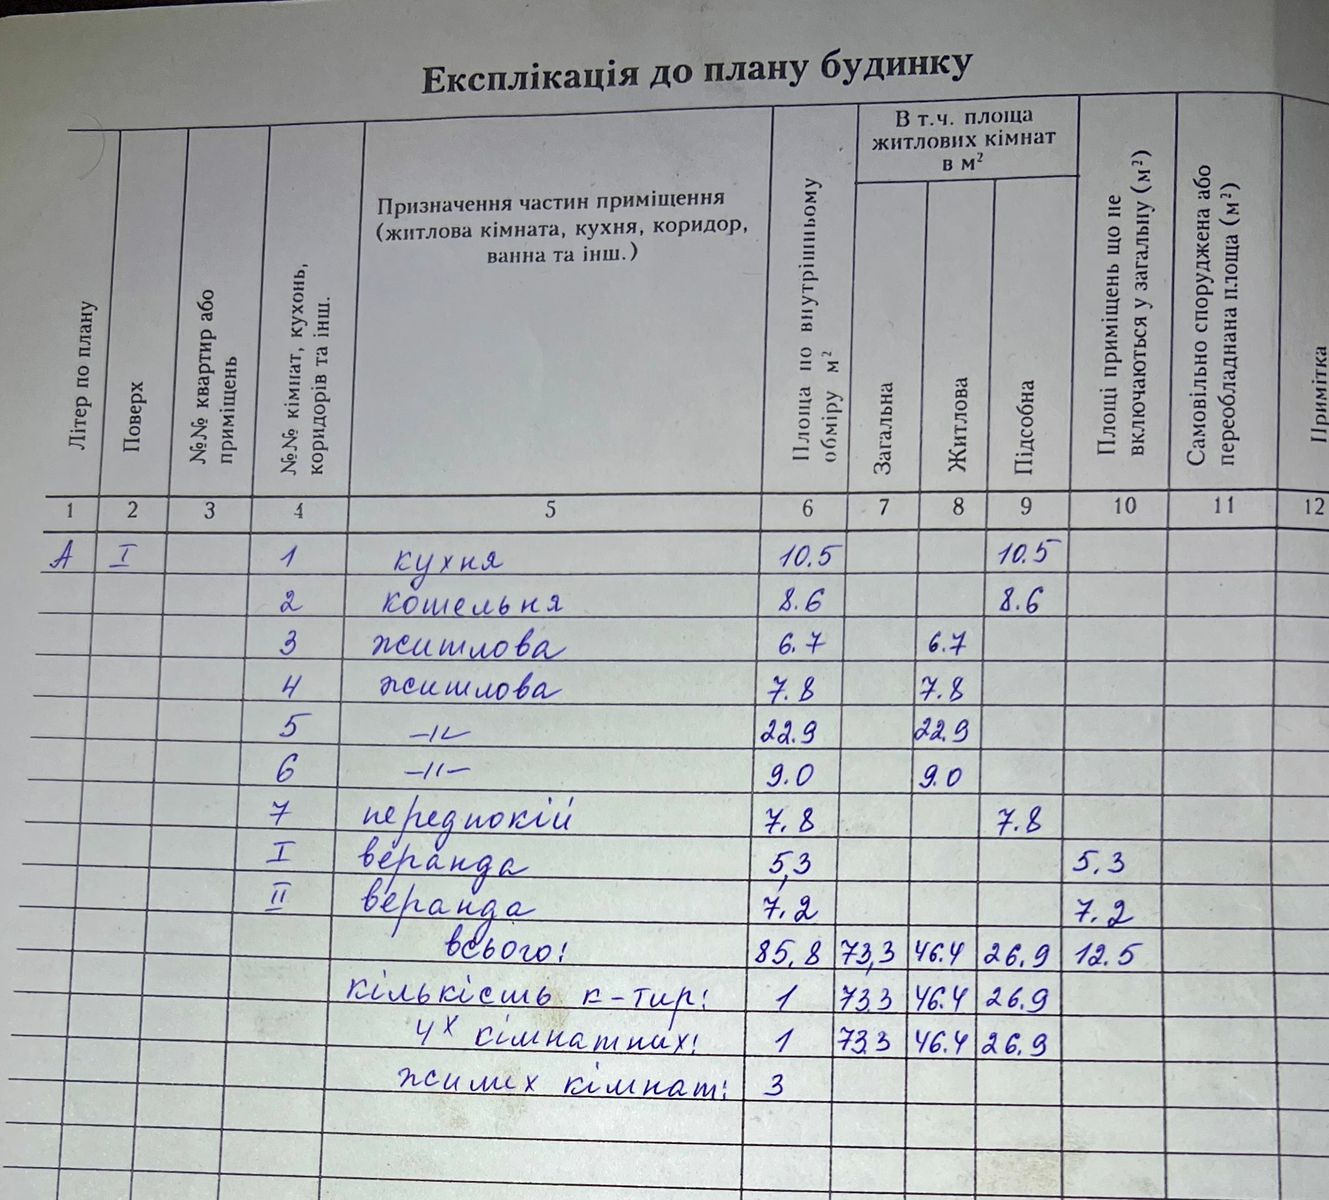 Експлікація до плану будинку
Літер по плану
Поверх
№№ квартир або
приміщень
№№ кімнат, кухонь,
коридорів та інш.
Призначення частин приміщення
(житлова кімната, кухня, коридор,
ванна та інш.)
Площа по внутрішньому
обміру м²
В т.ч. площа
житлових кімнат
в м²
Загальна
Житлова
Підсобна
Площі приміщень що не
включаються у загальну (м²)
Самовільно споруджена або
переобладнана площа (м²)
Примітка
1 2 3 4 5 6 7 8 9 10 11 12
А I 1 кухня 10.5 10.5
2 кошельня 8.6 8.6
3 житлова 6.7 6.7
4 житлова 7.8 7.8
5 -ІІ- 22.9 22.9
6 -ІІ- 9.0 9.0
7 передпокій 7.8 7.8
I веранда 5,3 5,3
II веранда 7,2 7,2
всього: 85,8 73,3 46.4 26.9 12.5
кількість к-тир: 1 73.3 46.4 26.9
4х кімнатних: 1 73.3 46.4 26.9
жилих кімнат: 3